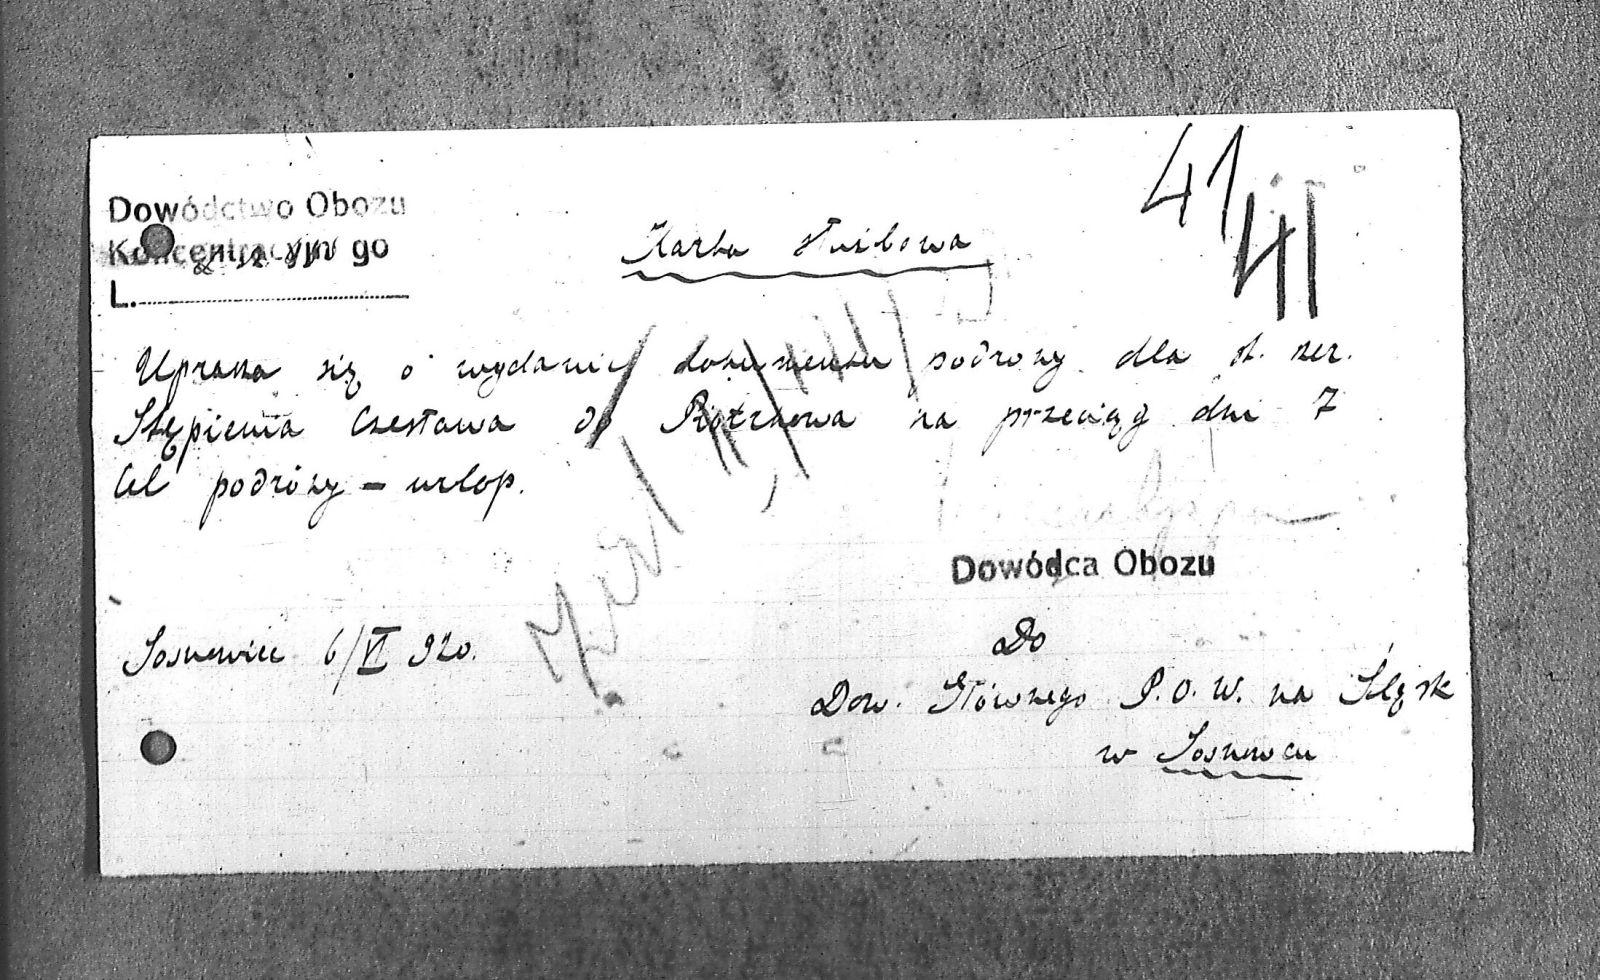 41
41
Dowództwo Obozu
Koncentracyjnego
L.
Karta służbowa
Uprasza się o wydanie dokumentu podrozy dla st. szer.
Stępienia Czesława do Piotrkowa na przeciąg dni 7
Cel podróży – urlop.
Dowódca Obozu
Sosnowiec 6/VI 920.
Do
Dow. Głównego P.O.W. na Śląsk
w Sosnowcu